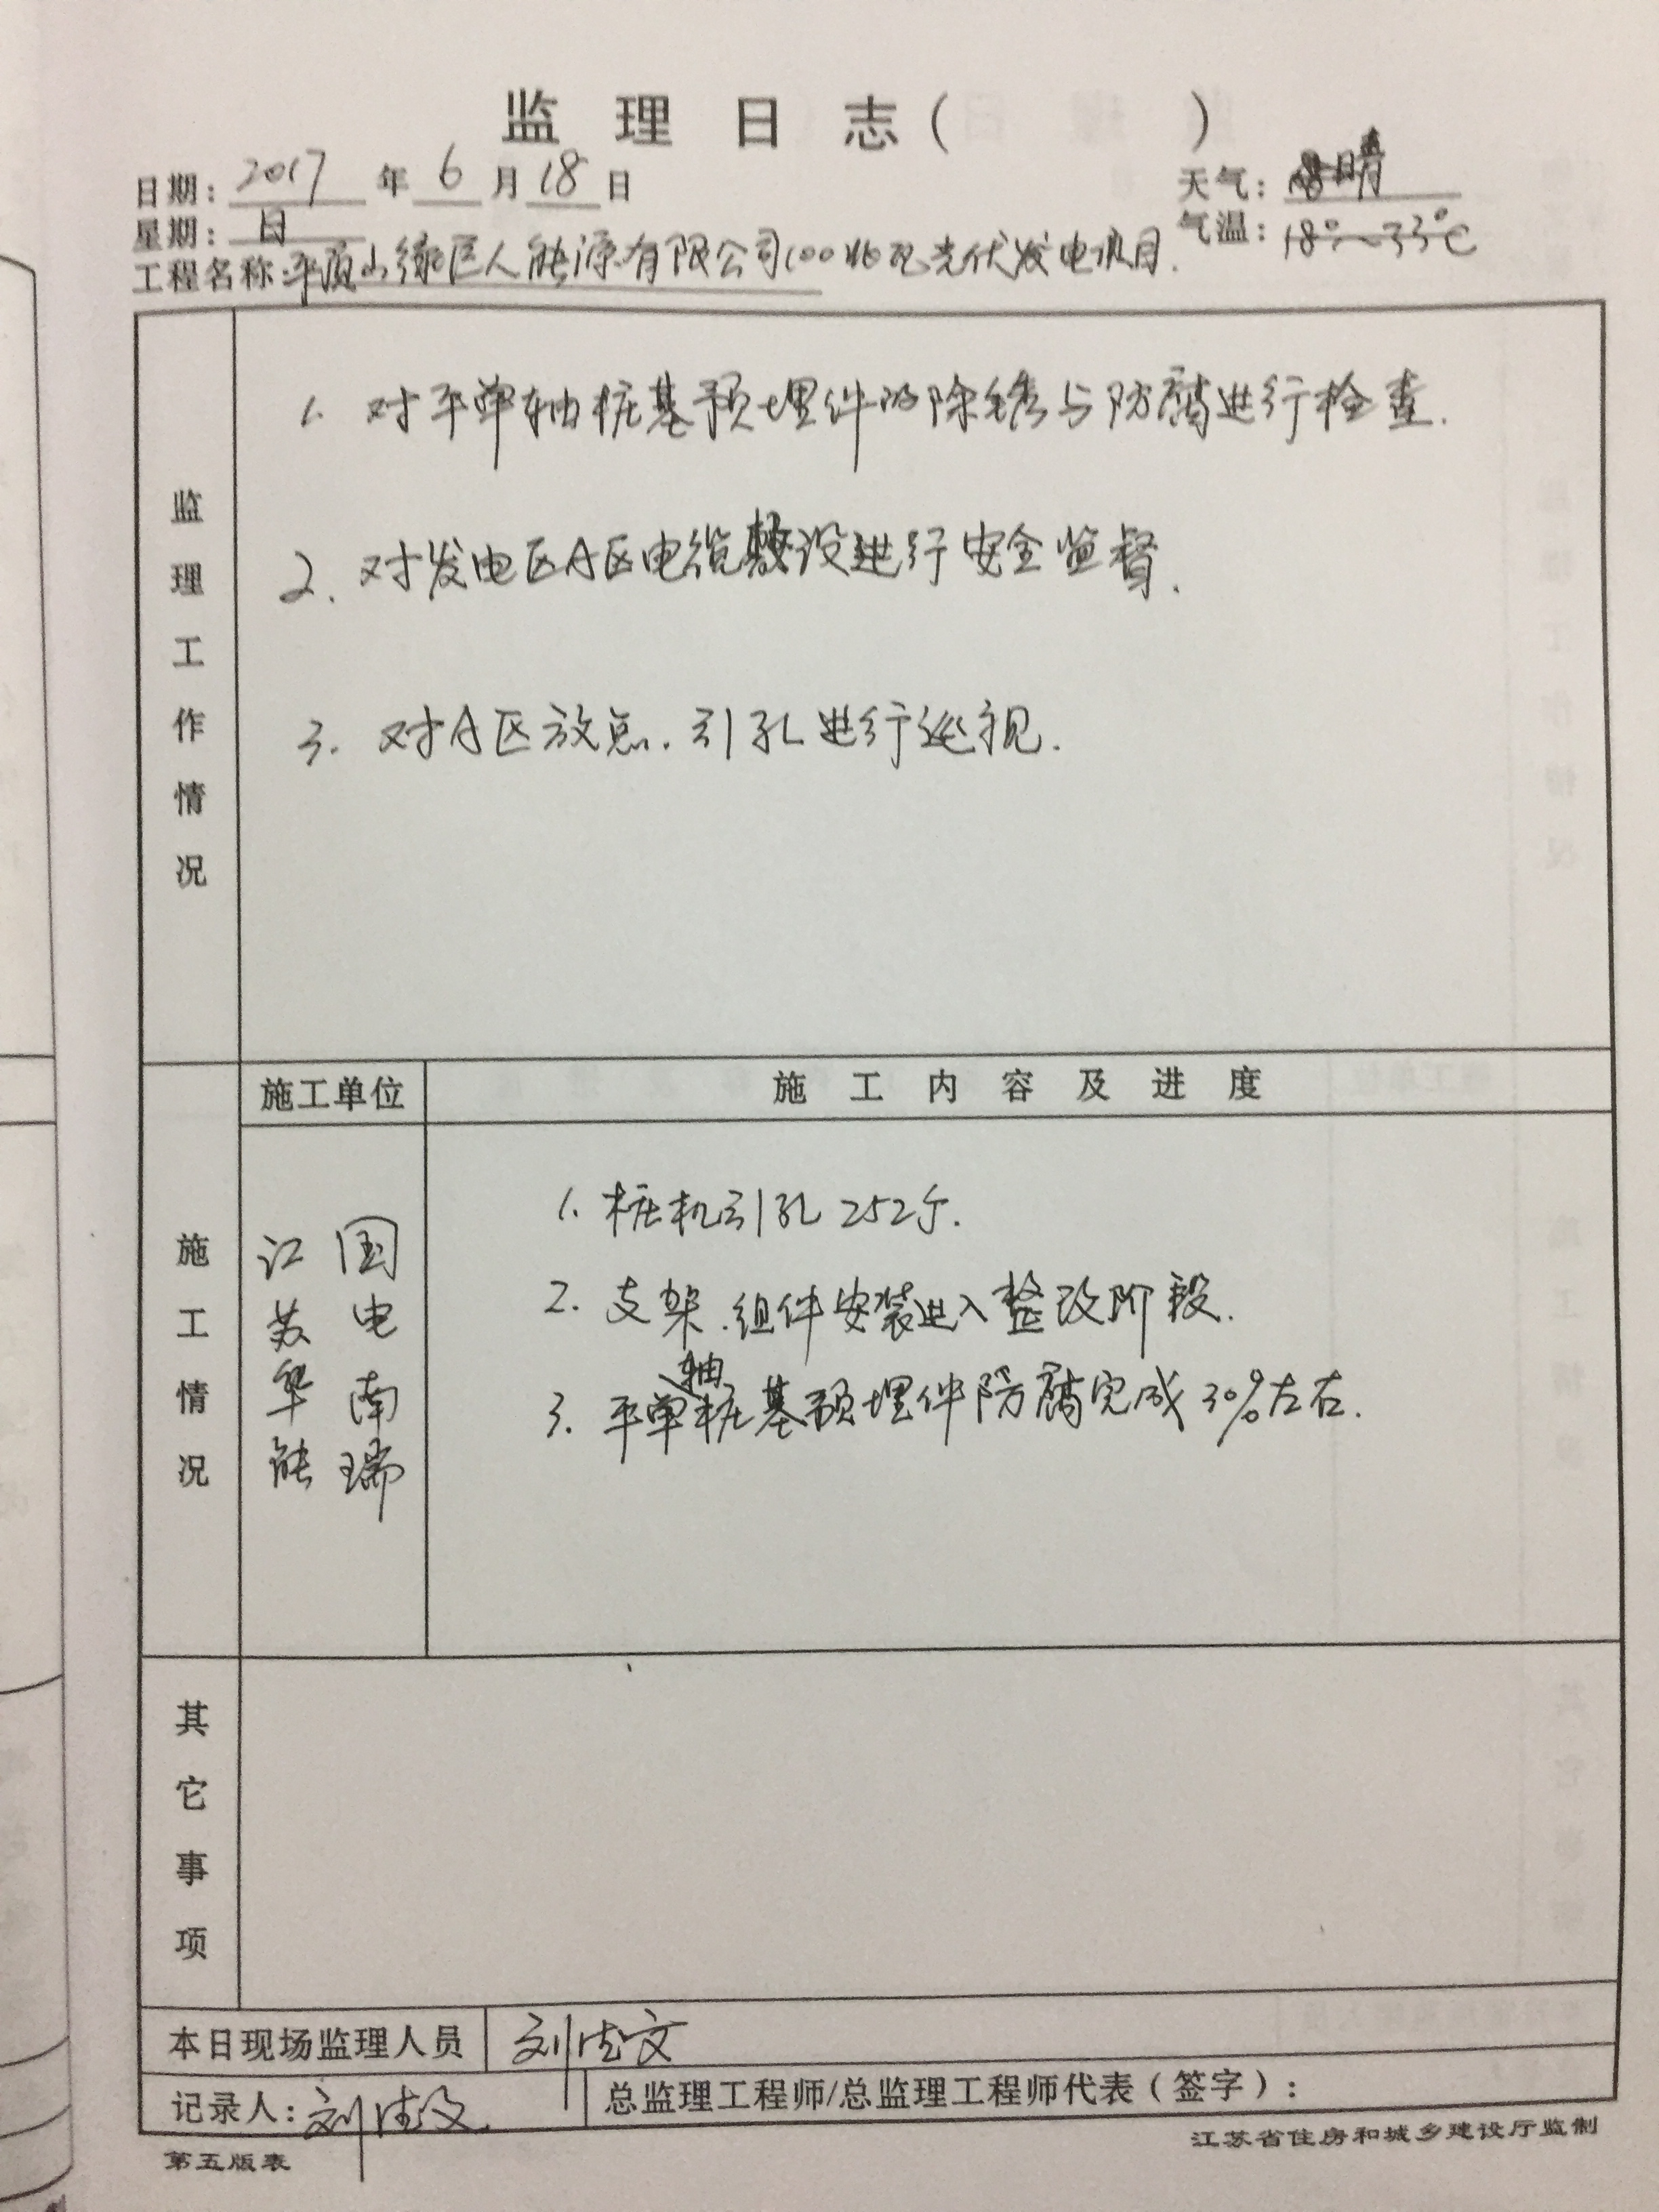 监 理 日 志 (          )
日期: 2017 年 6 月 18 日
天气: 晴
星期: 日
气温: 18°~33℃
工程名称:平顶山 能源有限公司100兆瓦光伏发电项目.
监理工作情况
1. 对平单轴桩基预埋件的除锈与防腐进行检查.
2. 对发电区A区电缆敷设进行安全监督.
3. 对A区放点.引孔进行巡视.
施工单位
施 工 内 容 及 进 度
施工情况
国电南瑞
江苏华能
1. 桩机引孔252个.
2. 支架.组件安装进入整改阶段.
3. 平单轴桩基预埋件防腐完成30%左右.
其它事项
本日现场监理人员 刘 文
记录人: 刘 文
总监理工程师/总监理工程师代表(签字):
第五版表
江苏省住房和城乡建设厅监制